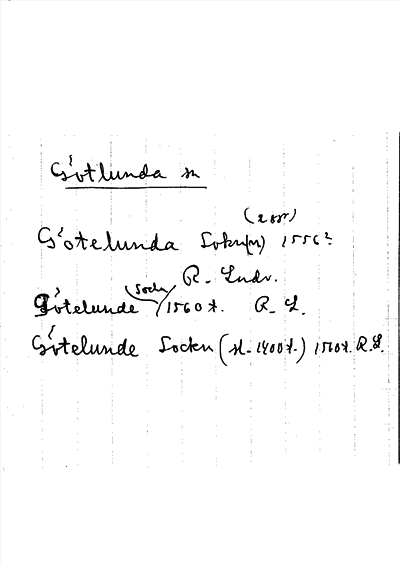 Götlunda sn
(2 ggr)
Götelunda Sokn(n) 1556?
R. Lndr.
Götelunde (Sockn) 1560 t. R. L.
Götelunde Sockn (sl. 1400 t.) 1560 t. R. L.